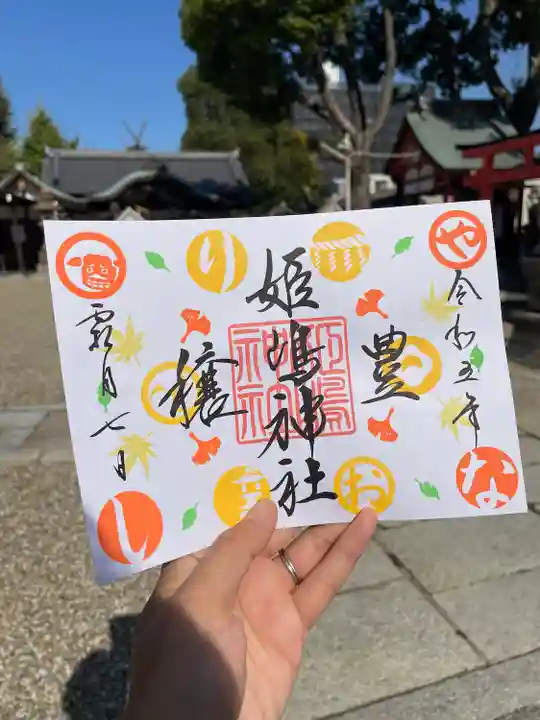 令和五年
豊
姫嶋神社
穰
霜月七日
や
な
お
り
し